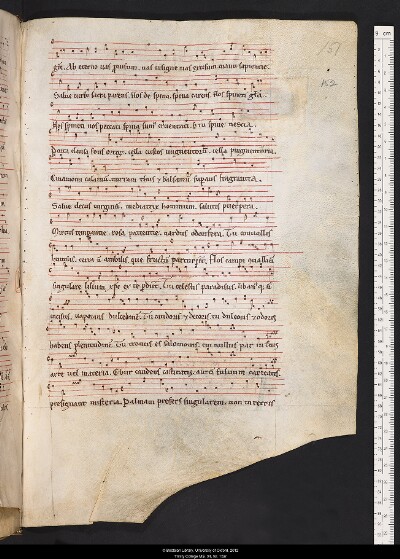 gr̄e. Ab eterno uas prouisum. uas insigne uas excisum manu sapientie.
Salue uerbi sacra parens. flos de spina. spina carens. flos spineti gl̄a.
Nos spinetū nos peccati spina sum' cruentati. s; tu spine nescia.
Porta clausa fons ortoꝝ. cella custos unguentoꝝ. cella pigmentaria.
Cinamomi calamū. mirram thus & balsamū superas fragrantia.
Salue decus uirginū. mediatrix hominum. salutis puerpera.
Mirtus temperantie. rosa patientie. nardus odorifera. Tu conuallis
humilis. terra n̄ arabilis. que fructū parturiit. Flos campi conualliū
singulare lilium. xp̄c ex te prodiit. Tu celestis paradisus. libanusq; n̄
incisus. uaporans dulcedinē. Tu candoris & decoris. tu dulcoris & odoris
habens plenitudinē. Tu tronus es salomonis. cui nullus par in tronis
arte uel materia. Ebur candens castitatis. aurū fuluum caritatis.
presignant misteria. Palmam prefers singularem. non in terris